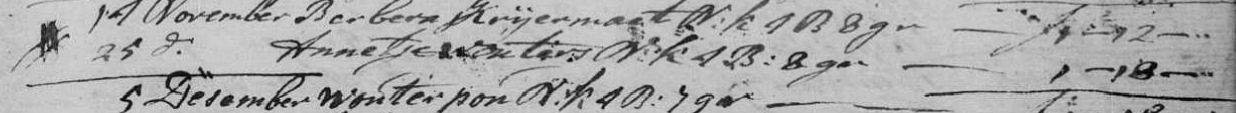 14 November Berbera Krijermaat N: k 4 B 8 gr — f 1 - 12 -
25 d. Annetje wouters N: k 4 B: 8 gr — 1 - 18 -
5 Desember wouter pon N: k 4 B: 7 gr —